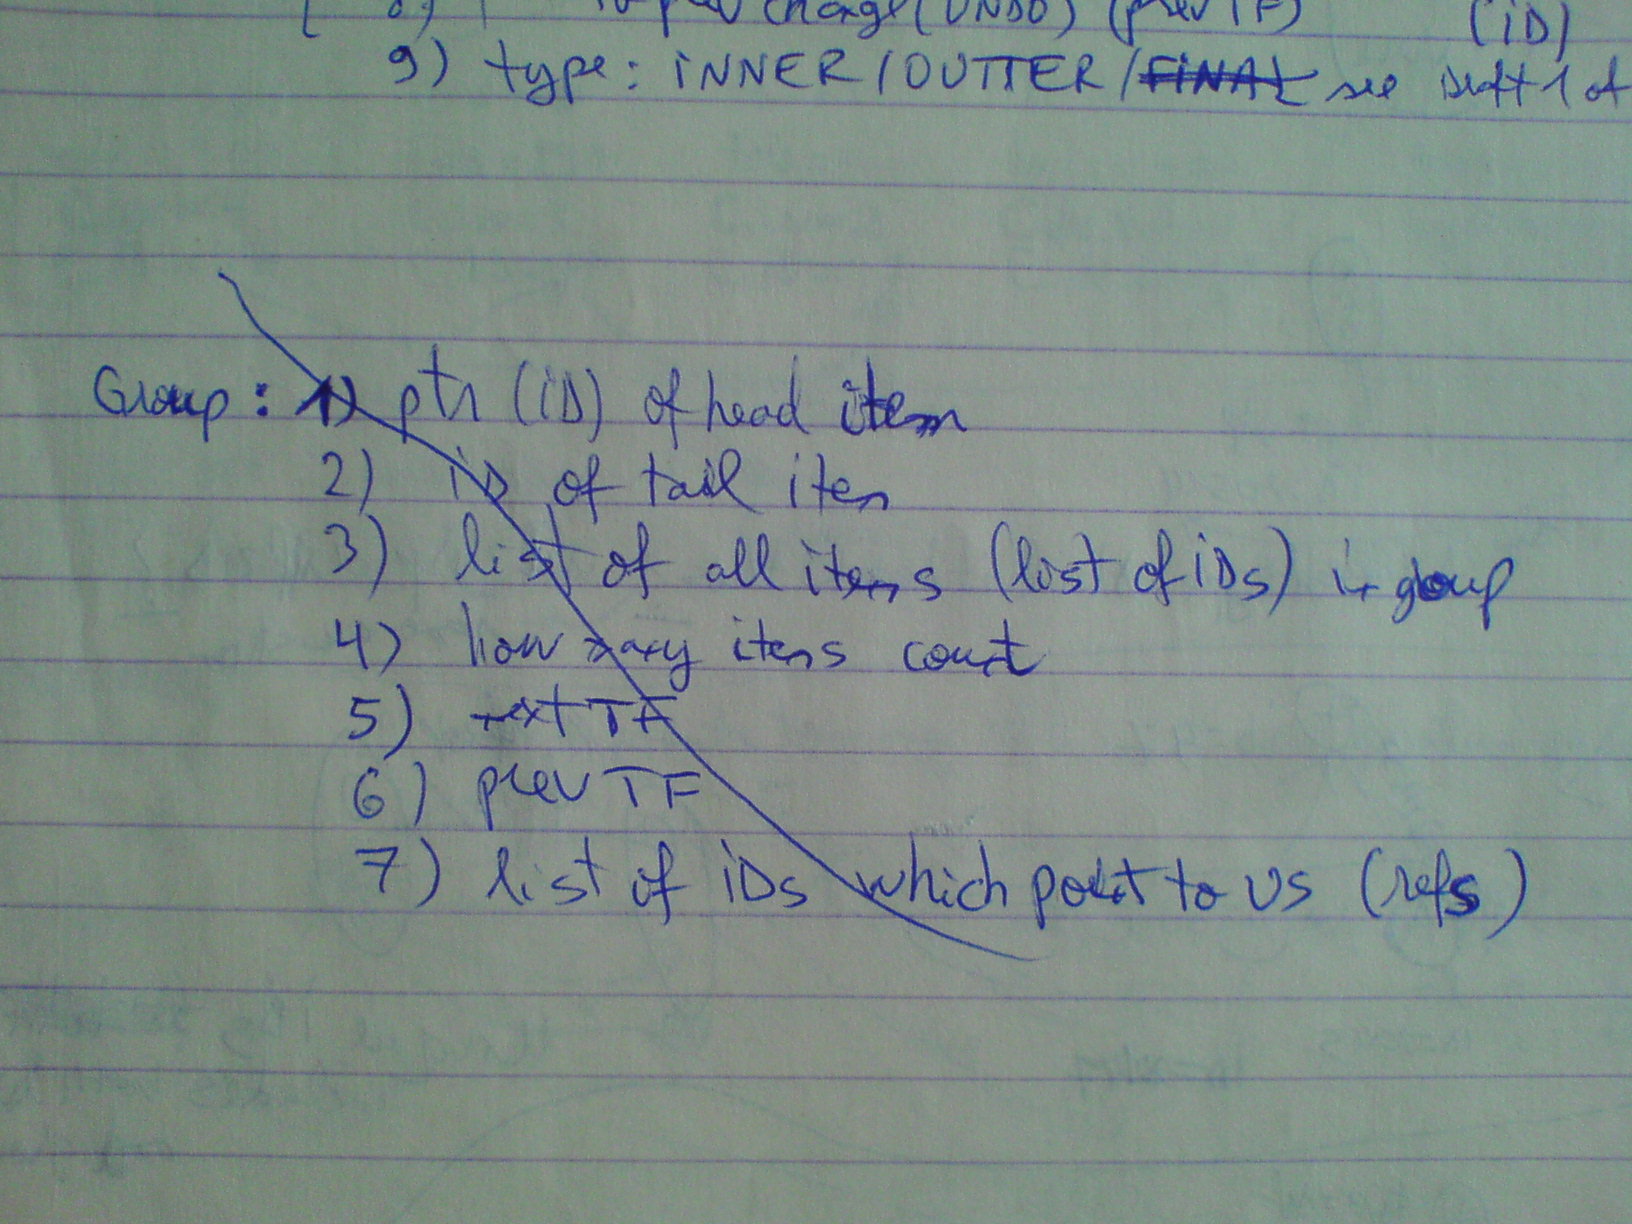 8) prev change (UNDO) (prev TF) (iD)
9) type: iNNER / OUTTER / FiNAL see
Group: 1) ptr (iD) of head item
2) iD of tail item
3) list of all items (list of iDs) in group
4) how many items count
5) next TF
6) prev TF
7) list of iDs which point to US (refs)